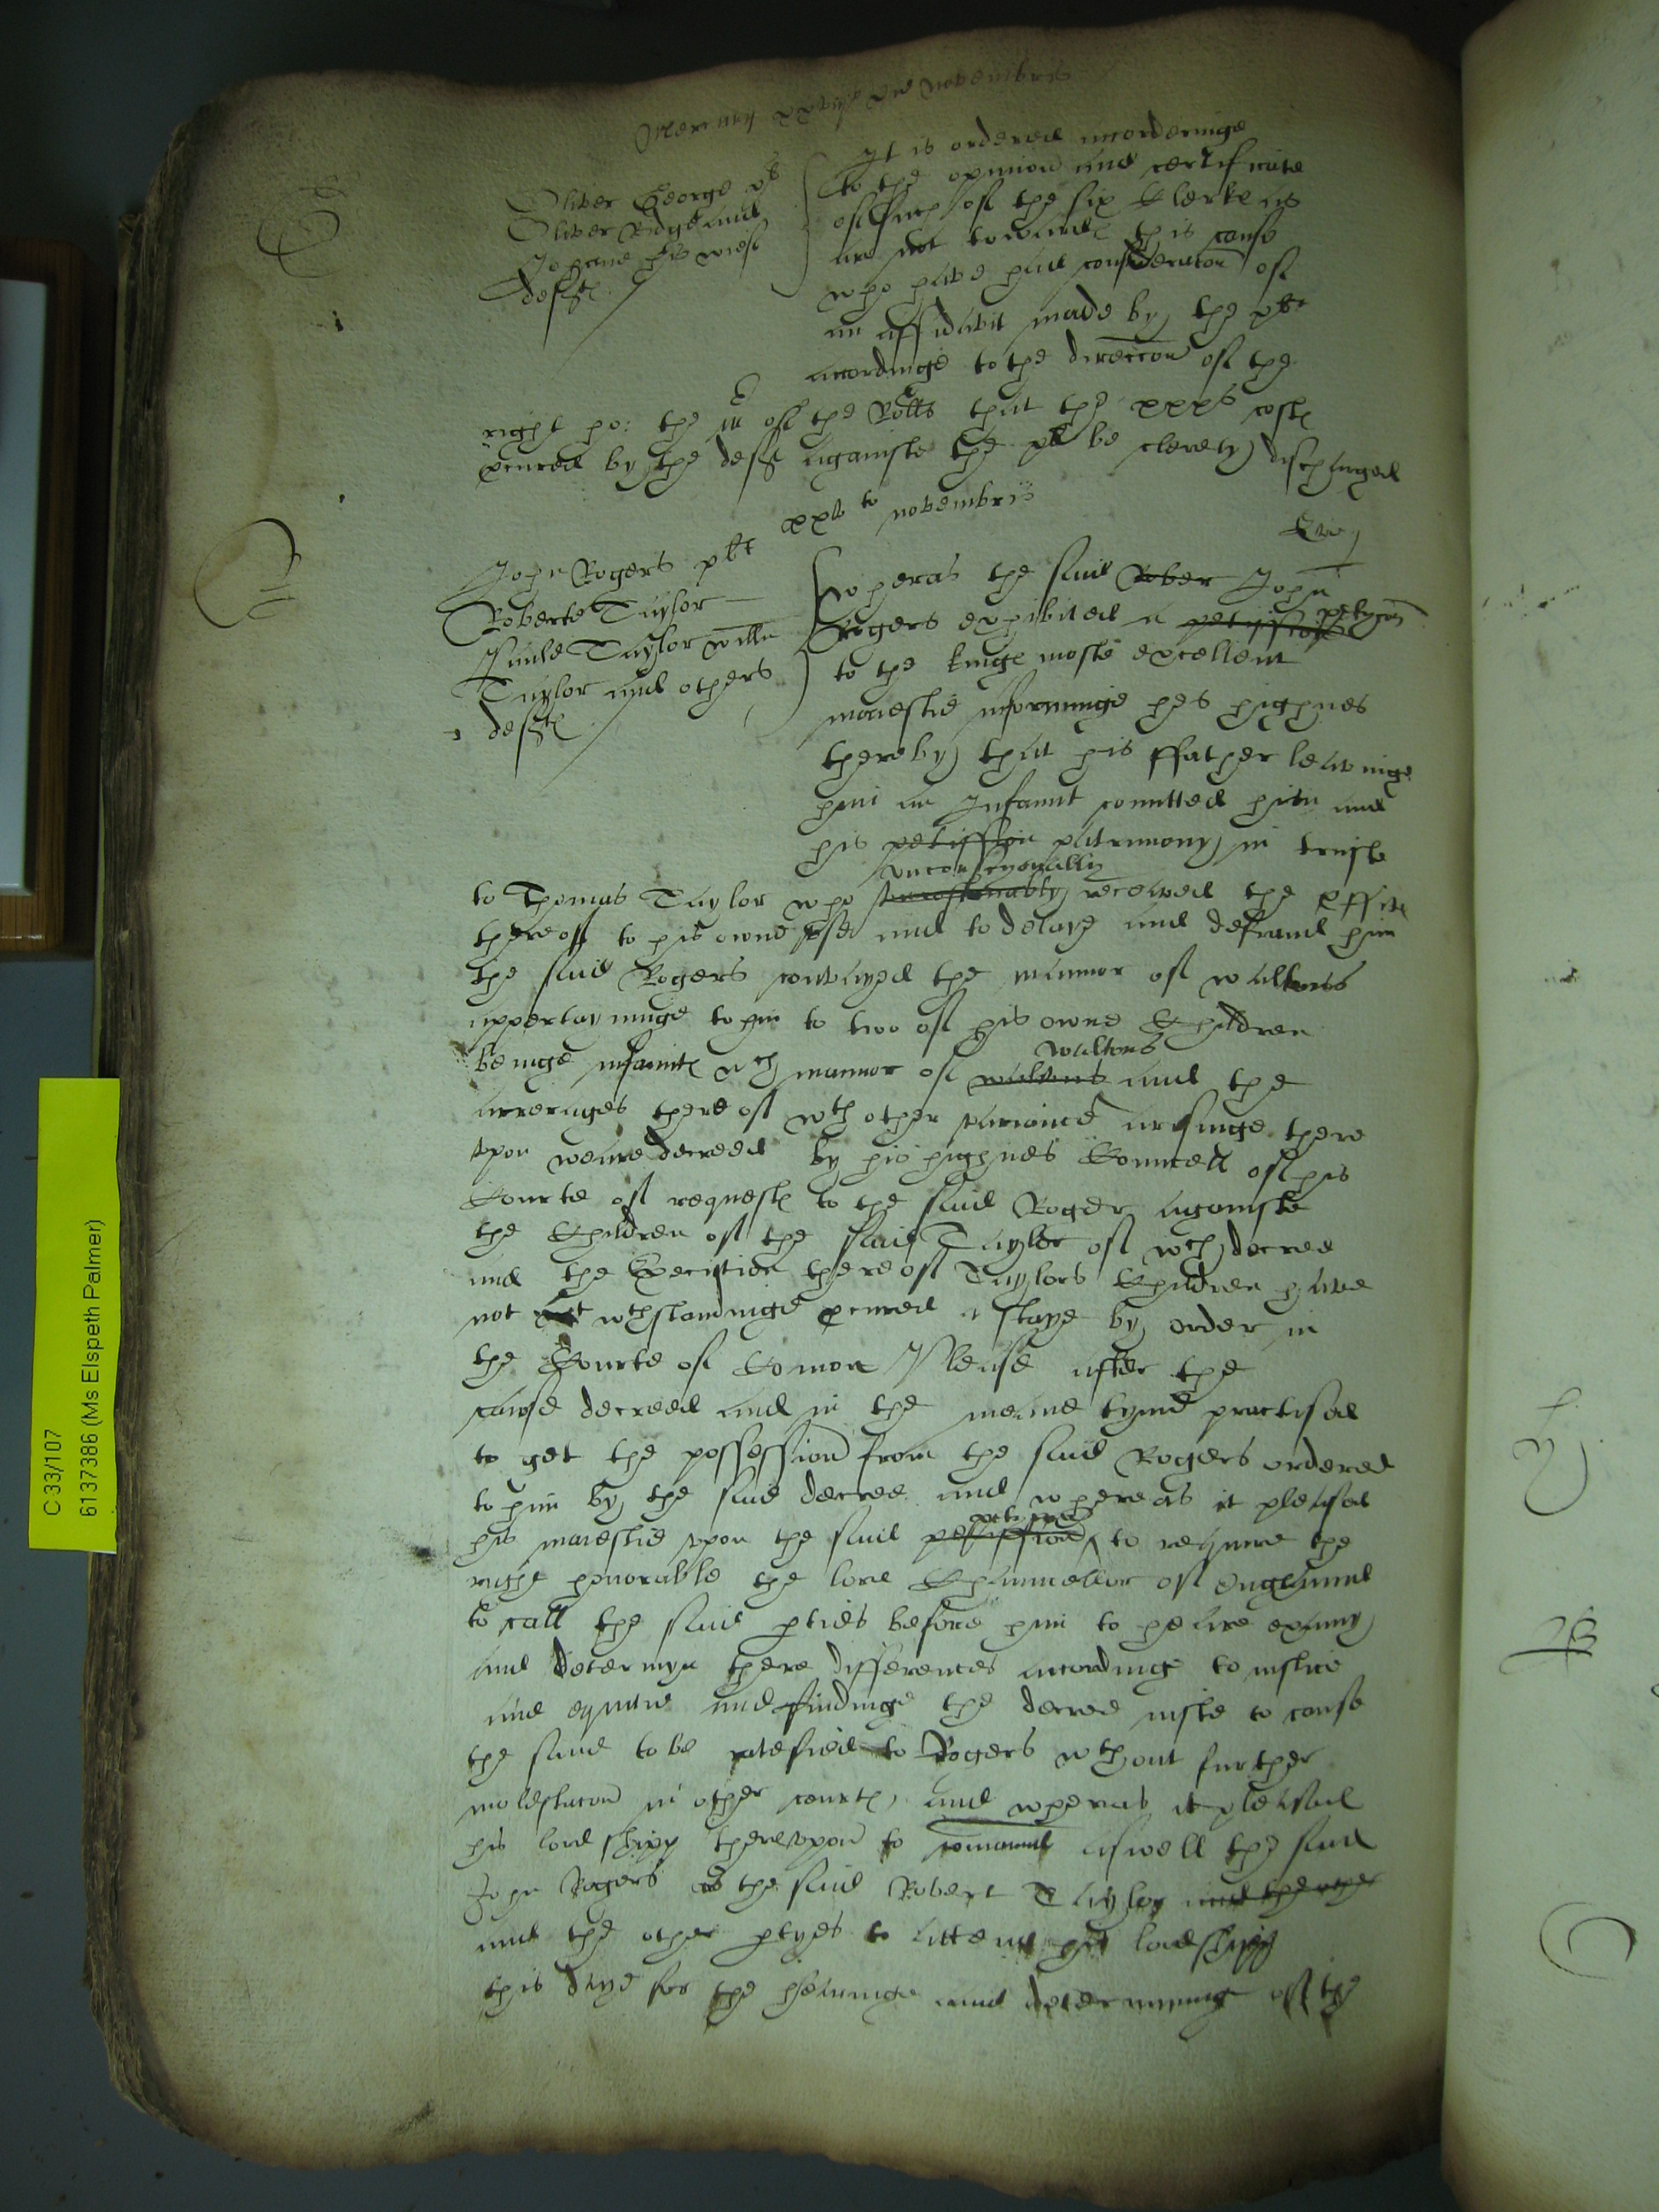 Mercurij xxviijo die Novembris
Oliver George pl
Oliver Ridge and
Johane his wief
defts
It is ordered accordeinge
to the opinion and certificate
of such of the six Clerke as
are not towardes this cause
who have had consideracon of
an affidavit made by the plt
accordinge to the direccon of the
right ho: the mr of the Rolls that the xxxs costes
pcured by the deft againste the pl be clerely discharged
xxvto novembris
John Rogers plt
Roberte Taylor
Paule Taylor willm
Taylor and others
deftes
wheras the said Rober John
Rogers exhibited a petission petycon
to the kinges moste excellent
maiestie informinge his highnes
thereby that his ffather leavinge
him an Infannt comitted him and
his petission patrimony in truste
unconscyonally
to Thomas Taylor who receaved the pffitts
thereof to his owne use and to delaye and defraud him
the said Rogers convayed the mannor of waltons
appertayninge to him to two of his owne Children
waltons
beinge infantes wch mannor of waltons and the
arrerages thereof wth other arisinge there
upon weare decreed by his highnes Councell of his
Courte of requestes to the said Roger againste
the Children of the said Taylor of wch decree
and the Execution thereof Taylors Children have
not wthstandinge pcured a staye by order in
the Courte of Comon Please after the
cause decreed and in the meane tyme practised
to get the possession from the said Rogers ordered
to him by the said decree and whereas it pleased
petycon
his maiestie upon the said petission to requier the
right honorable the lord Chauncellor of England
to call the said pties before him to heare examyn
and determyn there differences accordinge to iustice
and equitie and findinge the decree iuste to cause
the same to be ratefied to Rogers wthout further
molestacon in other courtes, and wheras it pleased
his lordshipp thereupon to comannd aswell the said
John Rogers as the said Robert Taylor and the other
and the other ptyes to attend his lordshipp
this daye for the hearinge and determyning of the
C 33/107
6137386 (Ms Elspeth Palmer)